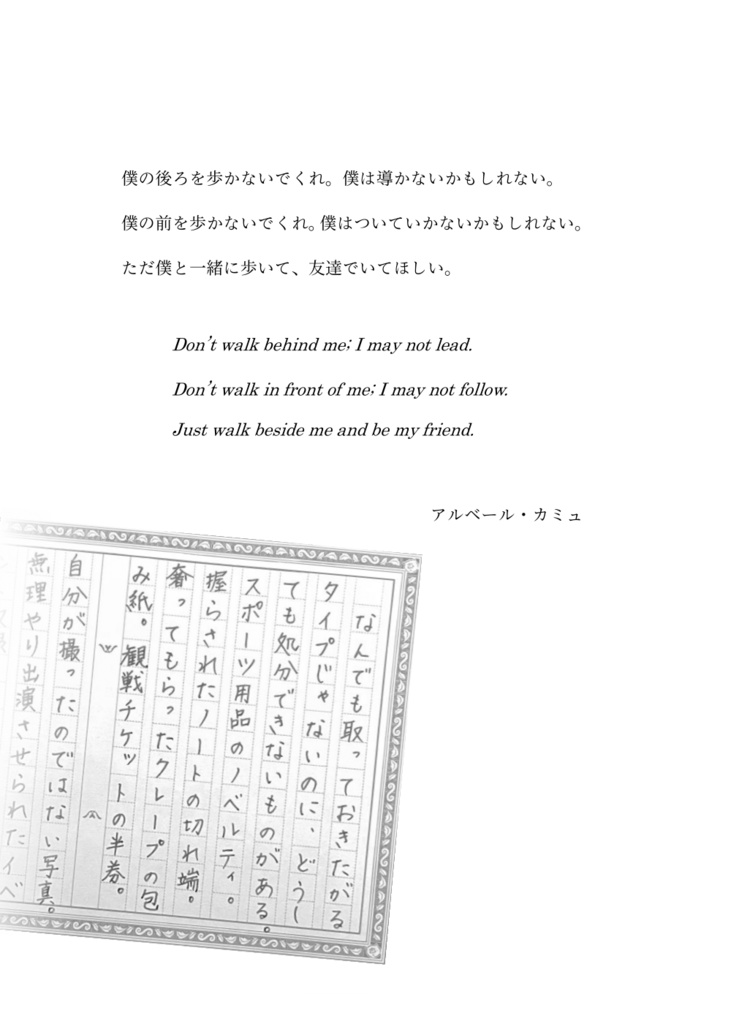 僕の後ろを歩かないでくれ。僕は導かないかもしれない。
僕の前を歩かないでくれ。僕はついていかないかもしれない。
ただ僕と一緒に歩いて、友達でいてほしい。
Don't walk behind me; I may not lead.
Don't walk in front of me; I may not follow.
Just walk beside me and be my friend.
アルベール・カミュ
なんでも取っておきたがる
タイプじゃないのに、どうし
ても処分できないものがある。
スポーツ用品のノベルティ。
握らされたノートの切れ端。
奢ってもらったクレープの包
み紙。観戦チケットの半券。
自分が撮ったのではない写真。
無理やり出演させられたイベ